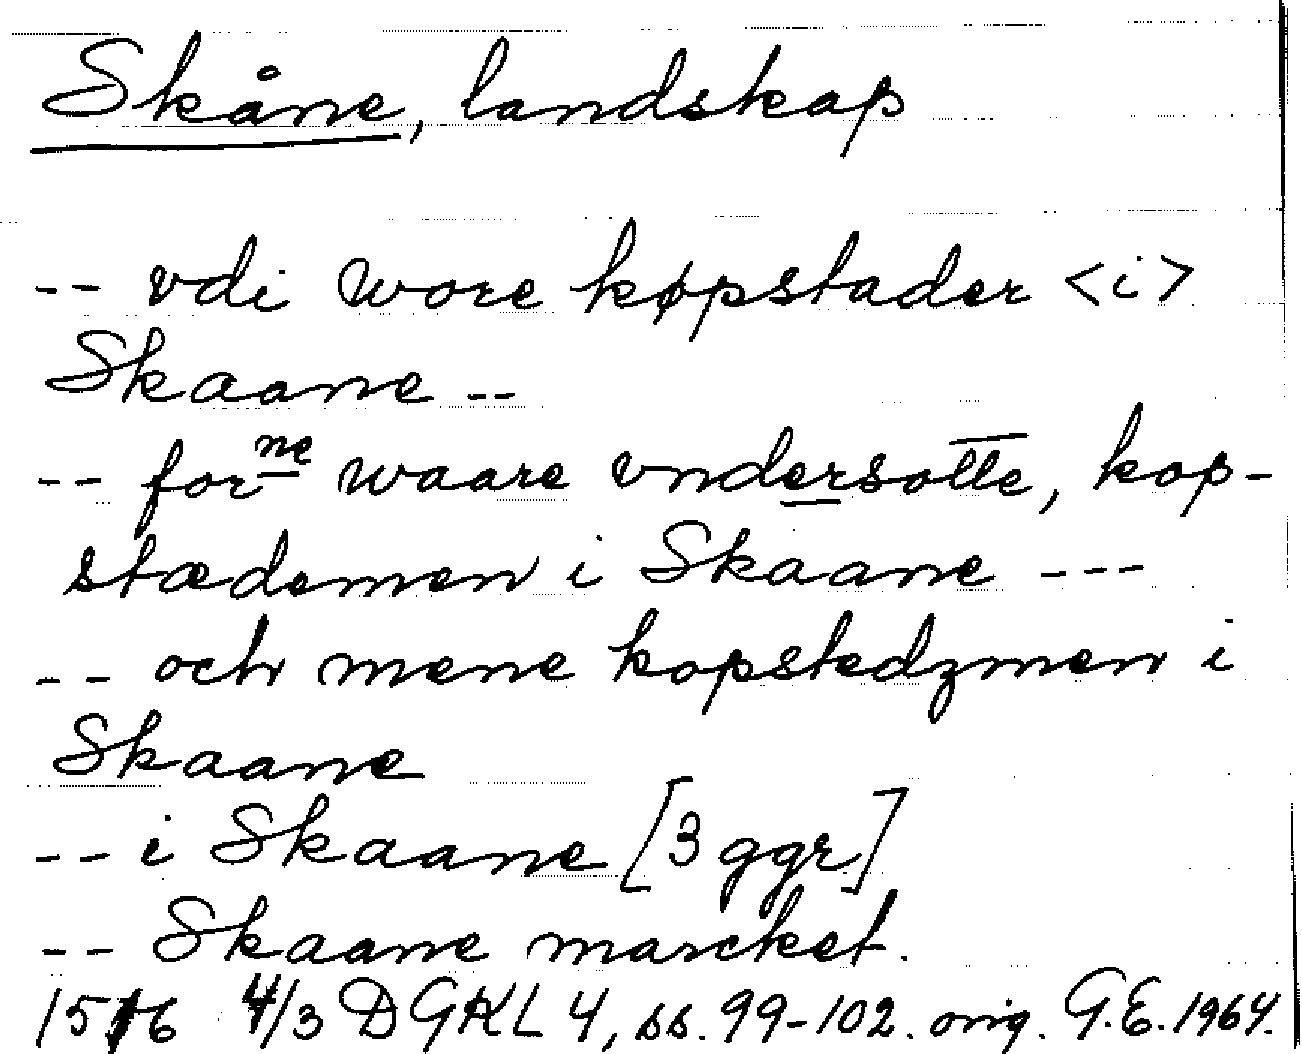 Skåne, landskap
-- vdi wore køpstader <i>
Skaane --
-- forne waare vndersotte, kop-
stædemen i Skaane ---
-- och mene kopstedzmen i
Skaane
-- i Skaane [3 ggr]
-- Skaane marcket.
1516 4/3 DGKL 4, ss. 99-102. orig. G.E. 1964.